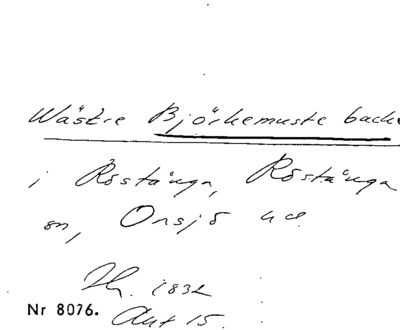 Wästre Björkemuste backe
i Röstånga, Röstånga
sn, Onsjö hd.
Th. 1832
Nr 8076. Akt 15.